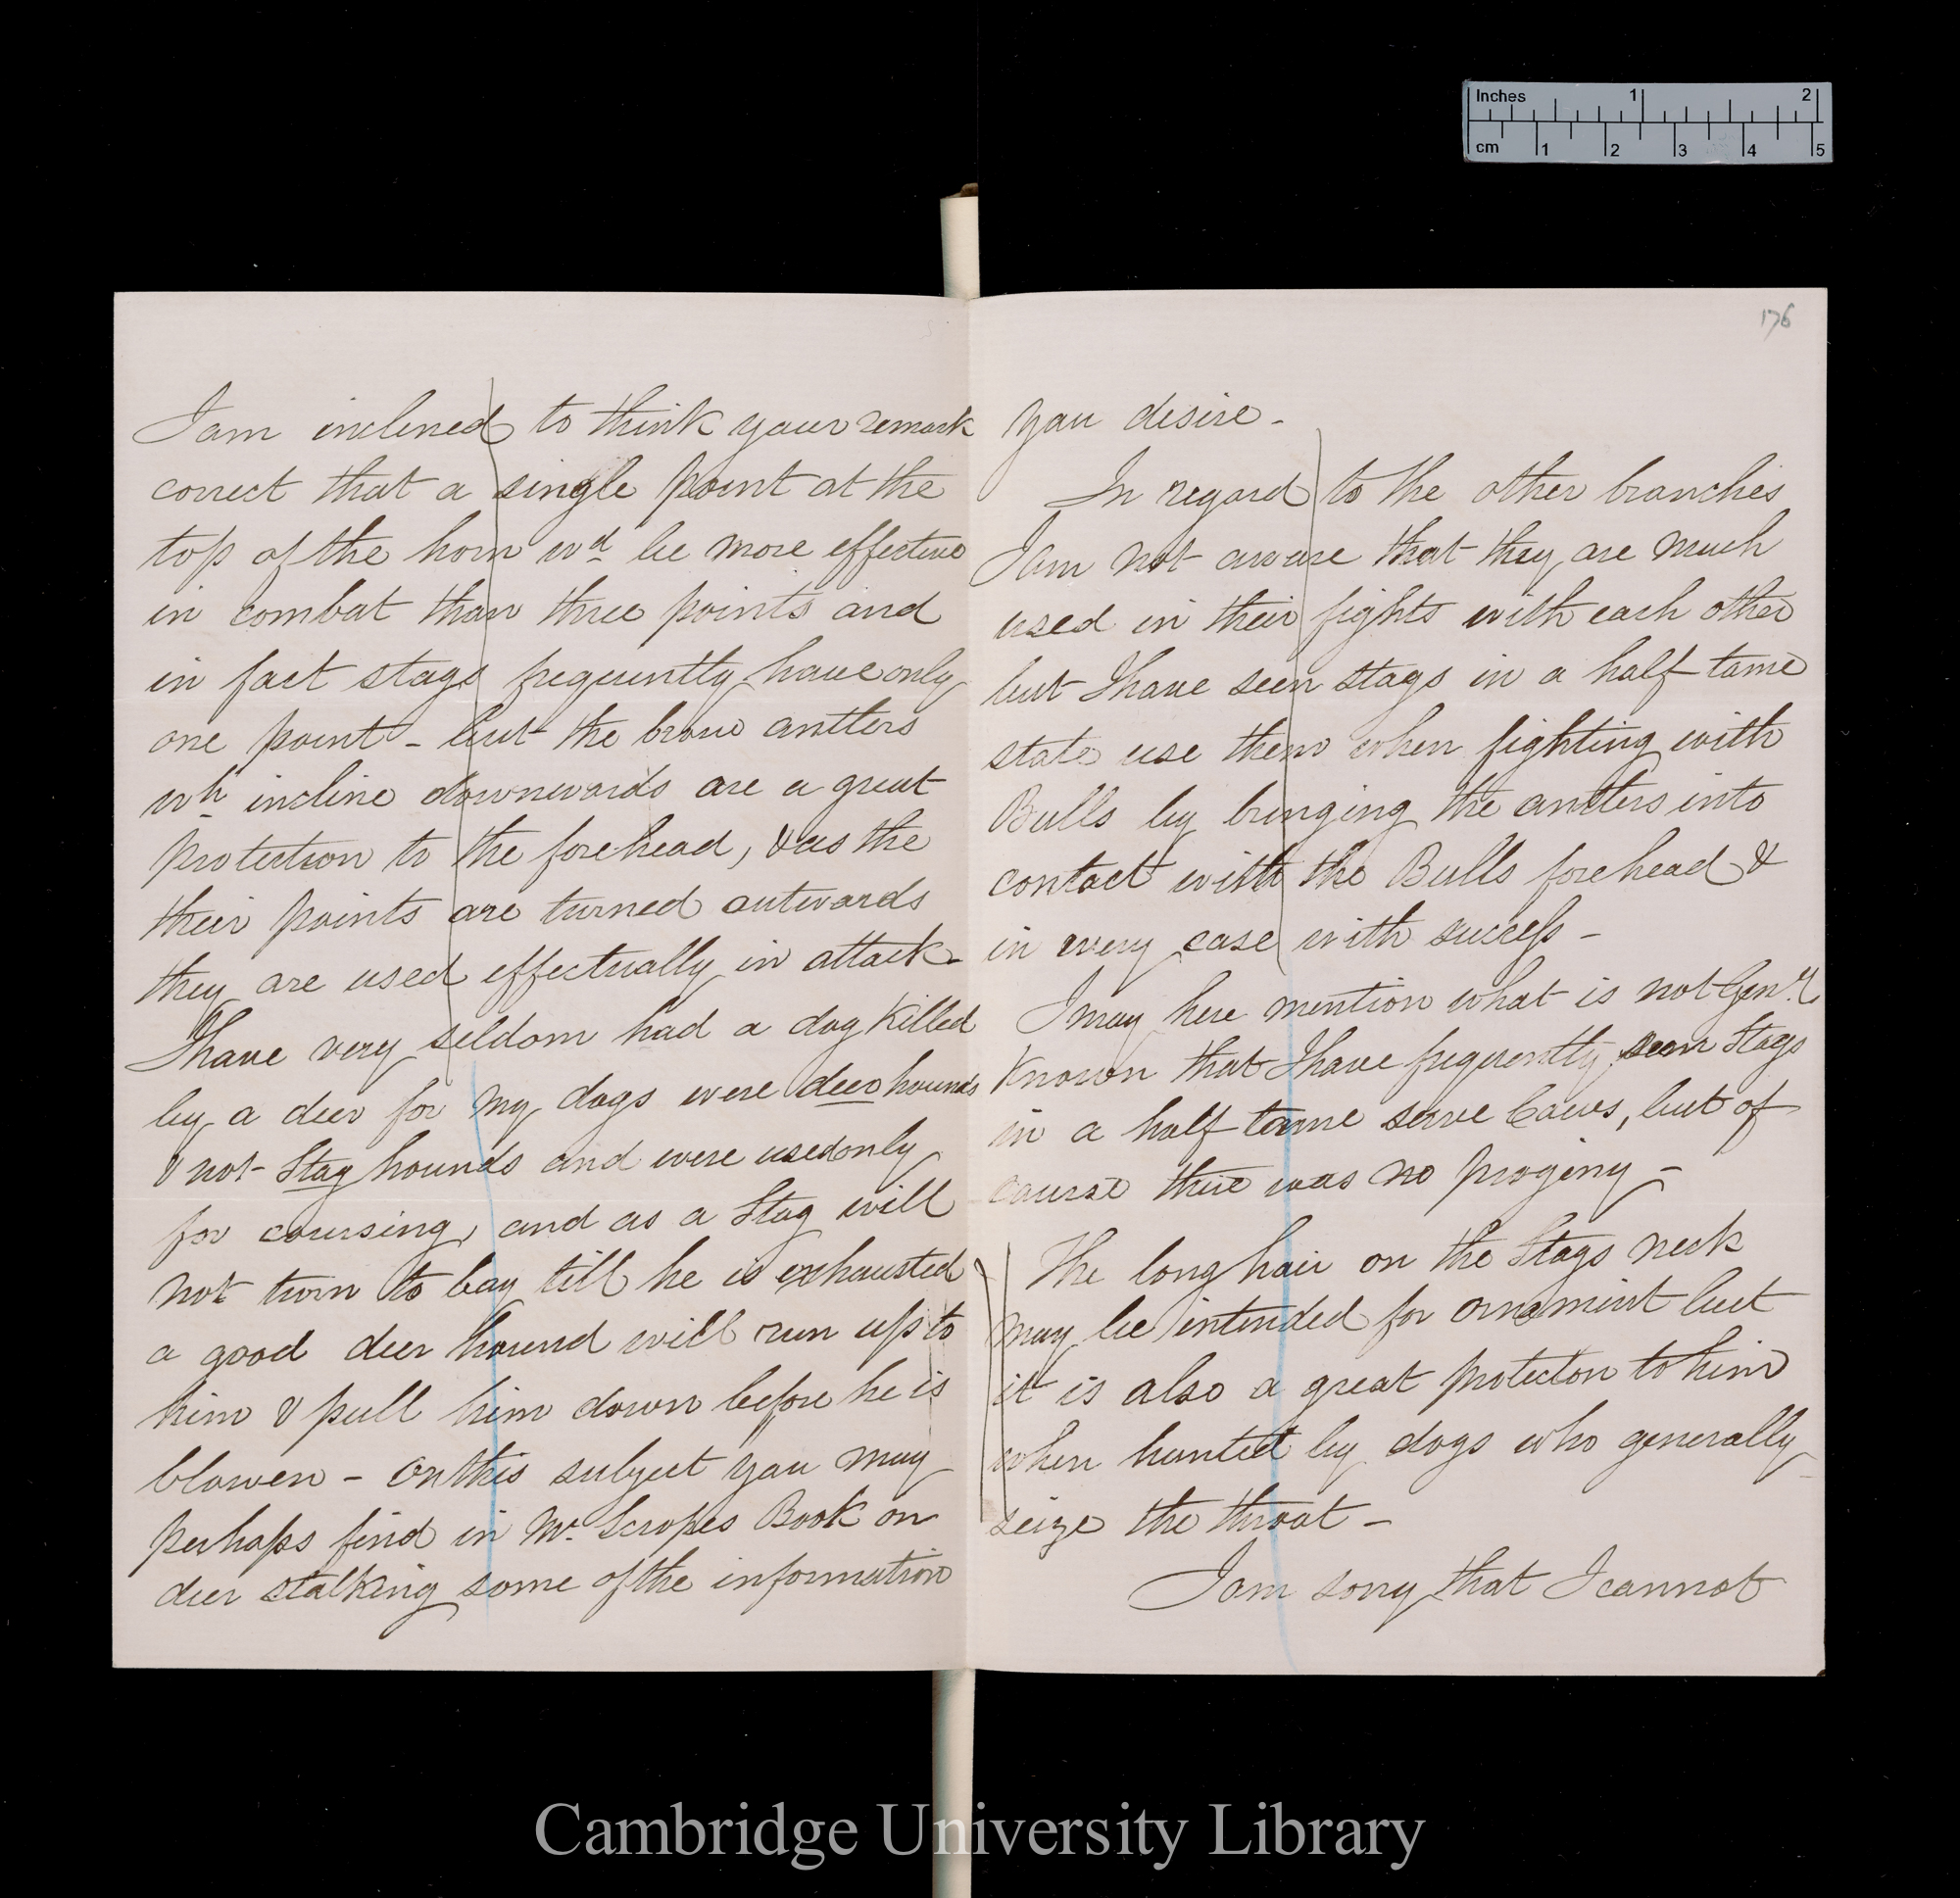 Inches 1 2
cm 1 2 3 4 5
176
I am inclined to think your remark
correct that a single point at the
top of the horn wd be more effective
in combat than three points and
in fact stags frequently have only
one point - but the brow antlers
wh incline downwards are a great
protection to the forehead, & as the
their points are turned outwards
they are used effectually in attack -
I have very seldom had a dog killed
by a deer for my dogs were deer hounds
& not Stag hounds and were used only
for coursing, and as a Stag will
not turn to bay till he is exhausted
a good deer hound will run up to
him & pull him down before he is
blowen - On this subject you may
perhaps find in Mr. Scropes Book on
deer stalking some of the information
you desire -
In regard to the other branches
I am not aware that they are much
used in their fights with each other
but I have seen stags in a half tame
state use them when fighting with
Bulls by bringing the antlers into
contact with the Bulls forehead &
in every case with success -
I may here mention what is not Genl.
Known that I have frequently seen Stags
in a half tame serve Cows, but of
course there was no progeny -
The long hair on the Stags neck
may be intended for ornament but
it is also a great protection to him
when hunted by dogs who generally
seize the throat -
I am sorry that I cannot
Cambridge University Library